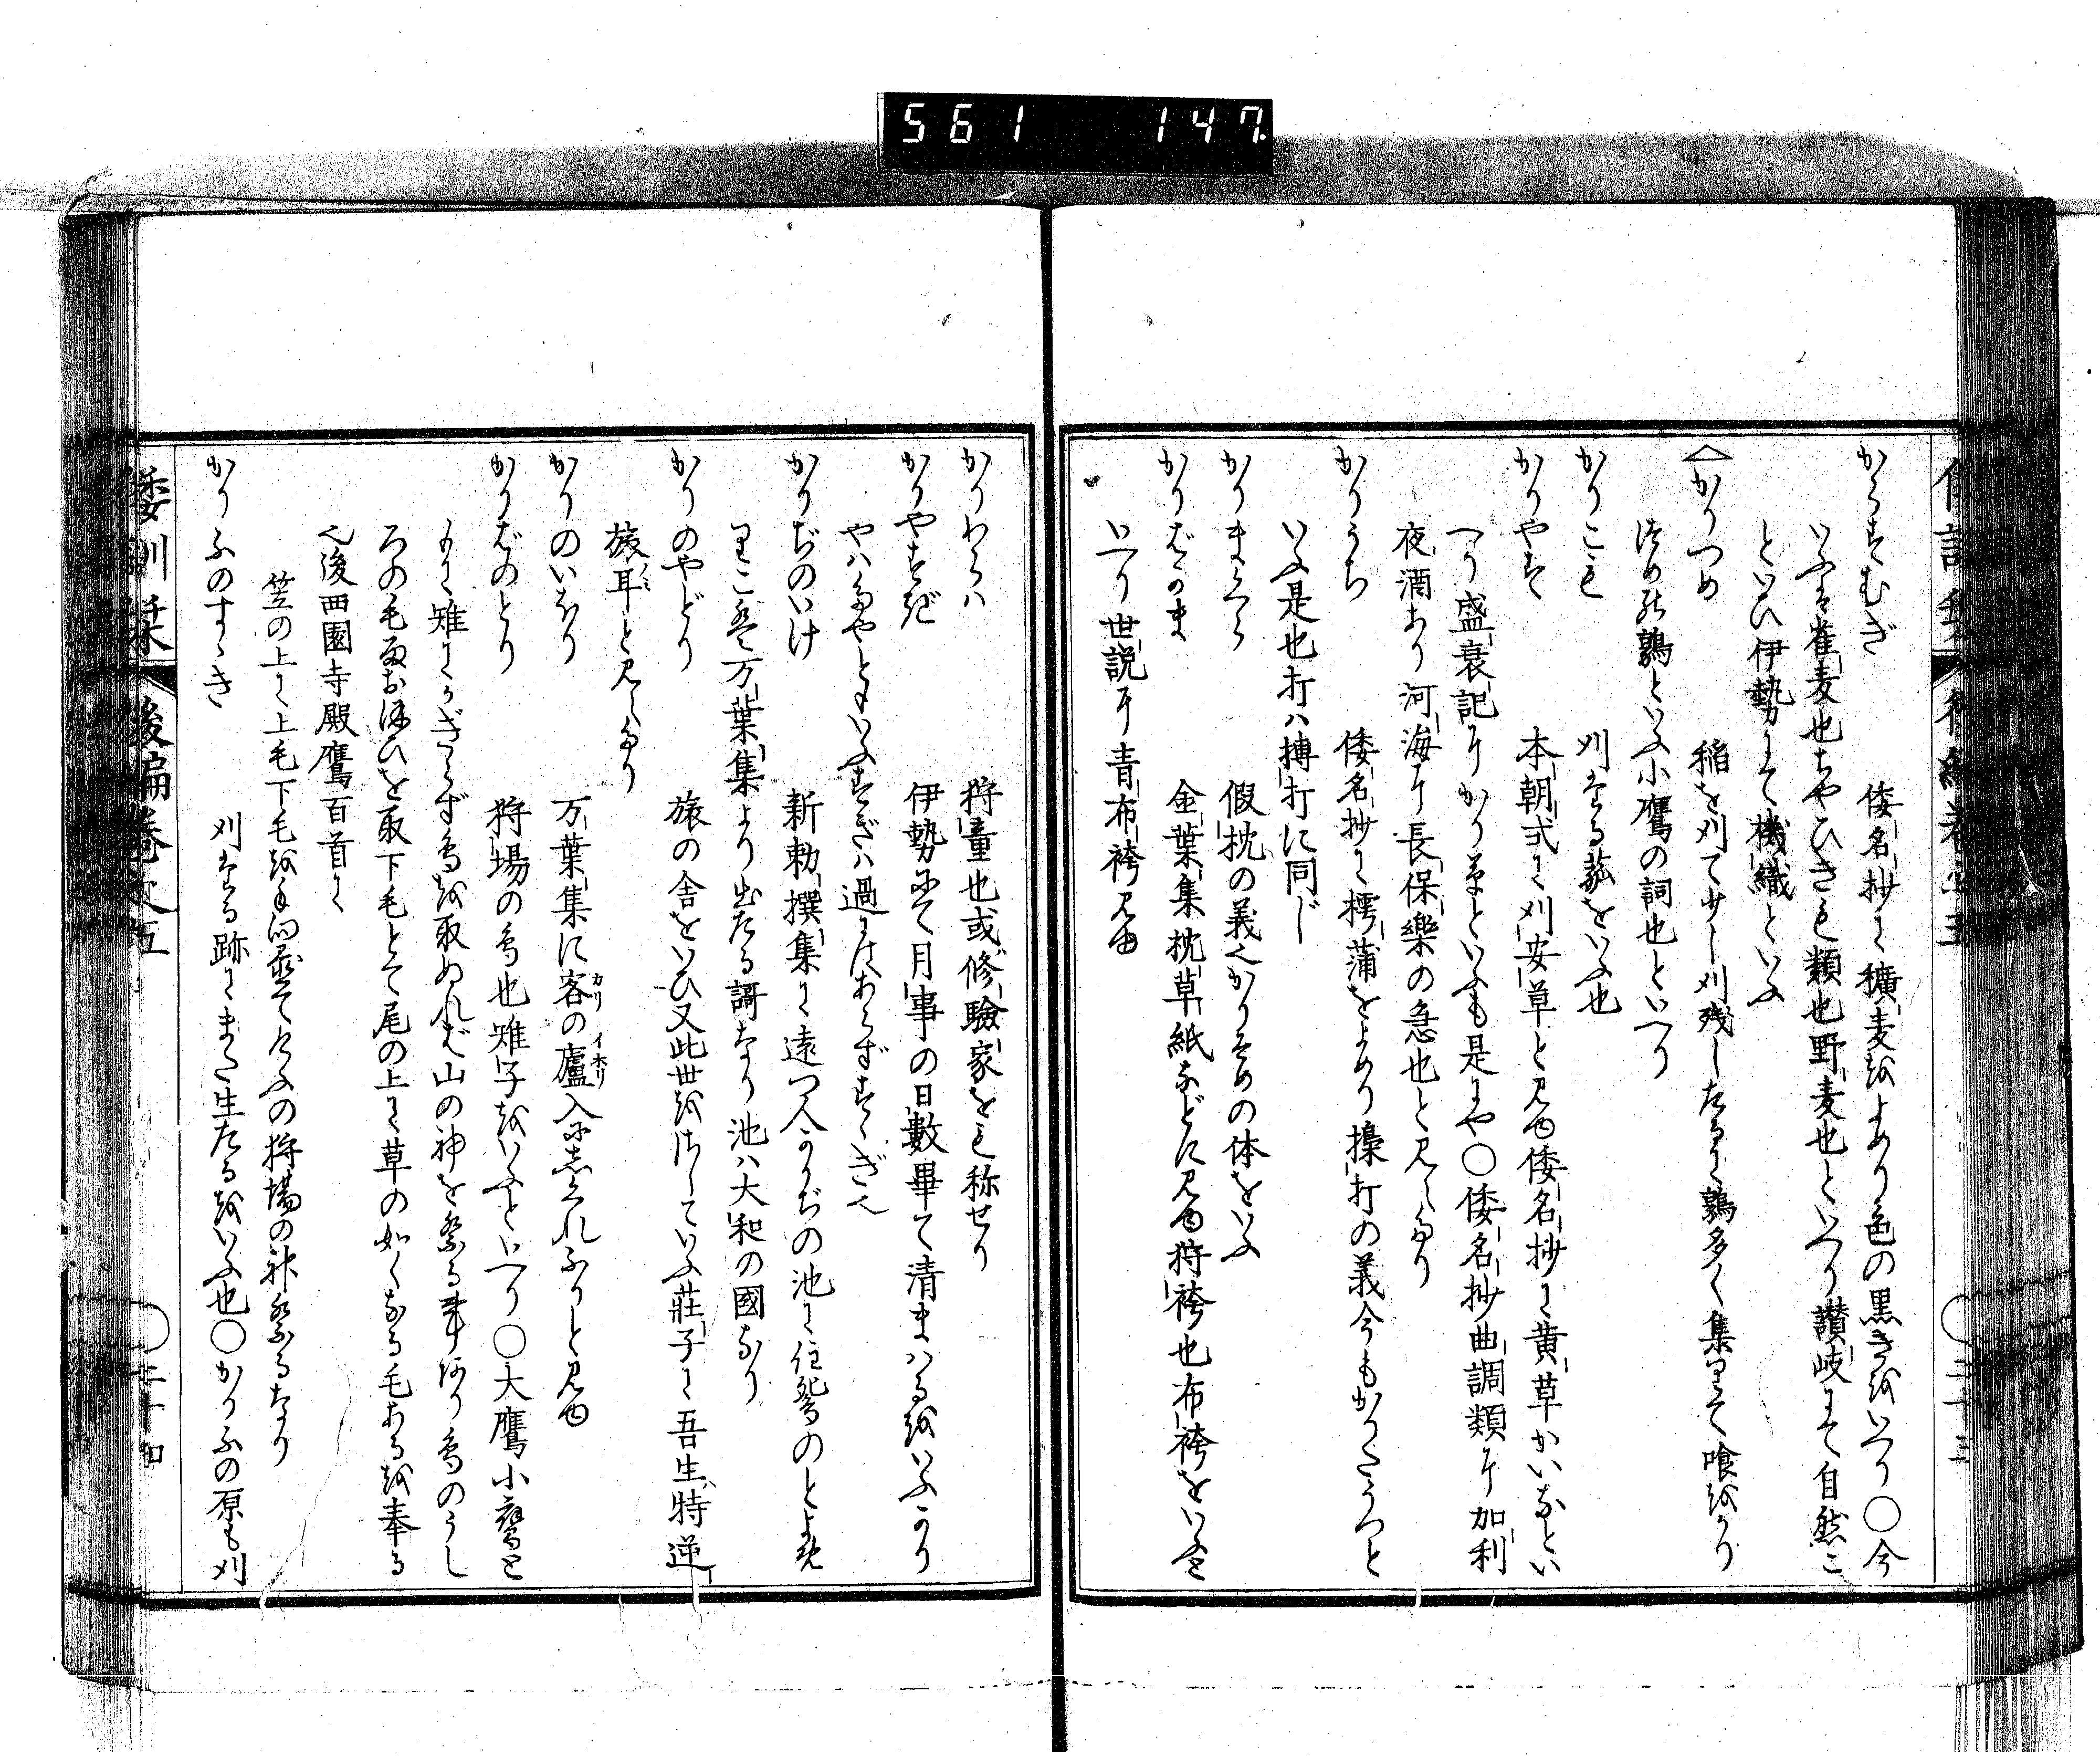 561 147
からすむぎ 倭名抄に穬麦をよめり色の黒きをいへり○今
いふは雀麦也ちやひきも類也野麦也といへり讃岐にて自然こ
といひ伊勢にて機織といふ
かりつめ 稲を刈て少し刈残したるに鶉多く集りて喰をかり
つめの鶉といふ小鷹の詞也といへり
かりこも 刈たる菰をいふ也
かりやす 本朝式に刈安草と見ゆ倭名抄に黄草かいなとい
へり盛衰記にかり草といふも是にや○倭名抄曲調類に加利
夜酒あり河海に長保樂の急也と見えたり
かりうち 倭名抄に樗蒲をよめり擽打の義今もかりたうつと
いふ是也打ハ搏打に同じ
かりまくら 假枕の義也かりそめの体をいふ
かりばかま 金葉集枕草紙などに見ゆ狩袴也布袴をいふと
いへり世説に青布袴見ゆ
かりわらハ 狩童也或修驗家をも称せり
かりやすぎ 伊勢にて月事の日數畢て清まハるをいふかり
やハ他やともいふすぎハ過にはあらずすゝぎ也
かりぢのいけ 新勅撰集に遠つ人かりぢの池に住鳥のとよめ
りこは万葉集より出たる謌なり池ハ大和の國なり
かりのやどり 旅の舎をいひ又此世をさしていふ莊子に吾生特逆
旅耳と見えたり
かりのいほり 万葉集に客の廬入にしぐれふりと見ゆ
かりばのとり 狩場の鳥也雉子をいふといへり○大鷹小鷹と
もに雉にかぎらず鳥を取ぬれば山の神を祭る事あり鳥のうし
ろの毛おほひを取下毛とて尾の上に草の如くなる毛あるを奉る
也後西園寺殿鷹百首に
笠の上に上毛下毛を手向置てけふの狩場の神祭るなり
かりふのすゝき 刈たる跡にまた生たるをいふ也○かりふの原も刈
倭訓栞 後編卷之五 ○二十四